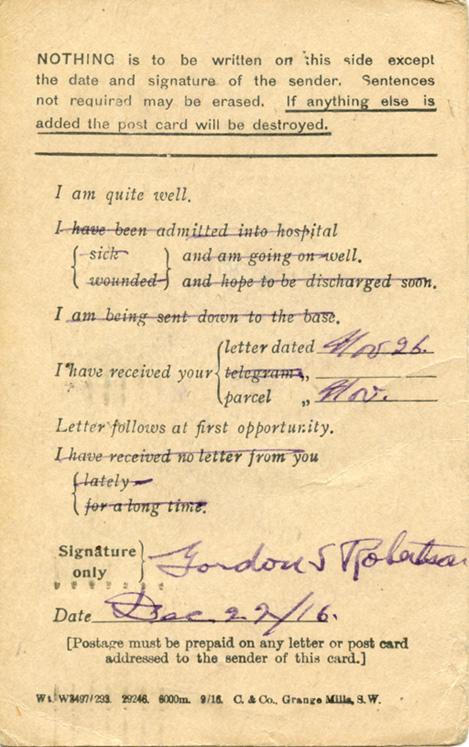 NOTHING is to be written on this side except
the date and signature of the sender. Sentences
not required may be erased. If anything else is
added the post card will be destroyed.
I am quite well.
I have been admitted into hospital
sick and am going on well.
wounded and hope to be discharged soon.
I am being sent down to the base.
letter dated Nov 26.
I have received your telegram „
parcel „ Nov.
Letter follows at first opportunity.
I have received no letter from you
lately
for a long time.
Signature
only Gordon S Robertson
Date Dec 22/16.
[Postage must be prepaid on any letter or post card
addressed to the sender of this card.]
Wt. W3497/293. 29246. 6000m. 9/16. C. & Co., Grange Mills, S.W.